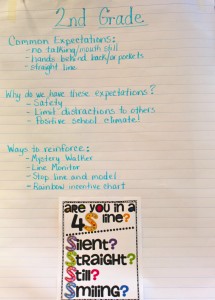 2nd Grade
Common Expectations:
- no talking/mouth still
- hands behind back/or pockets
- straight line
Why do we have these expectations?
- Safety
- Limit distractions to others
- Positive school climate!
Ways to reinforce:
- Mystery Walker
- Line Monitor
- Stop line and model
- Rainbow incentive chart
are you in a
4S line?
Silent?
Straight?
Still?
Smiling?